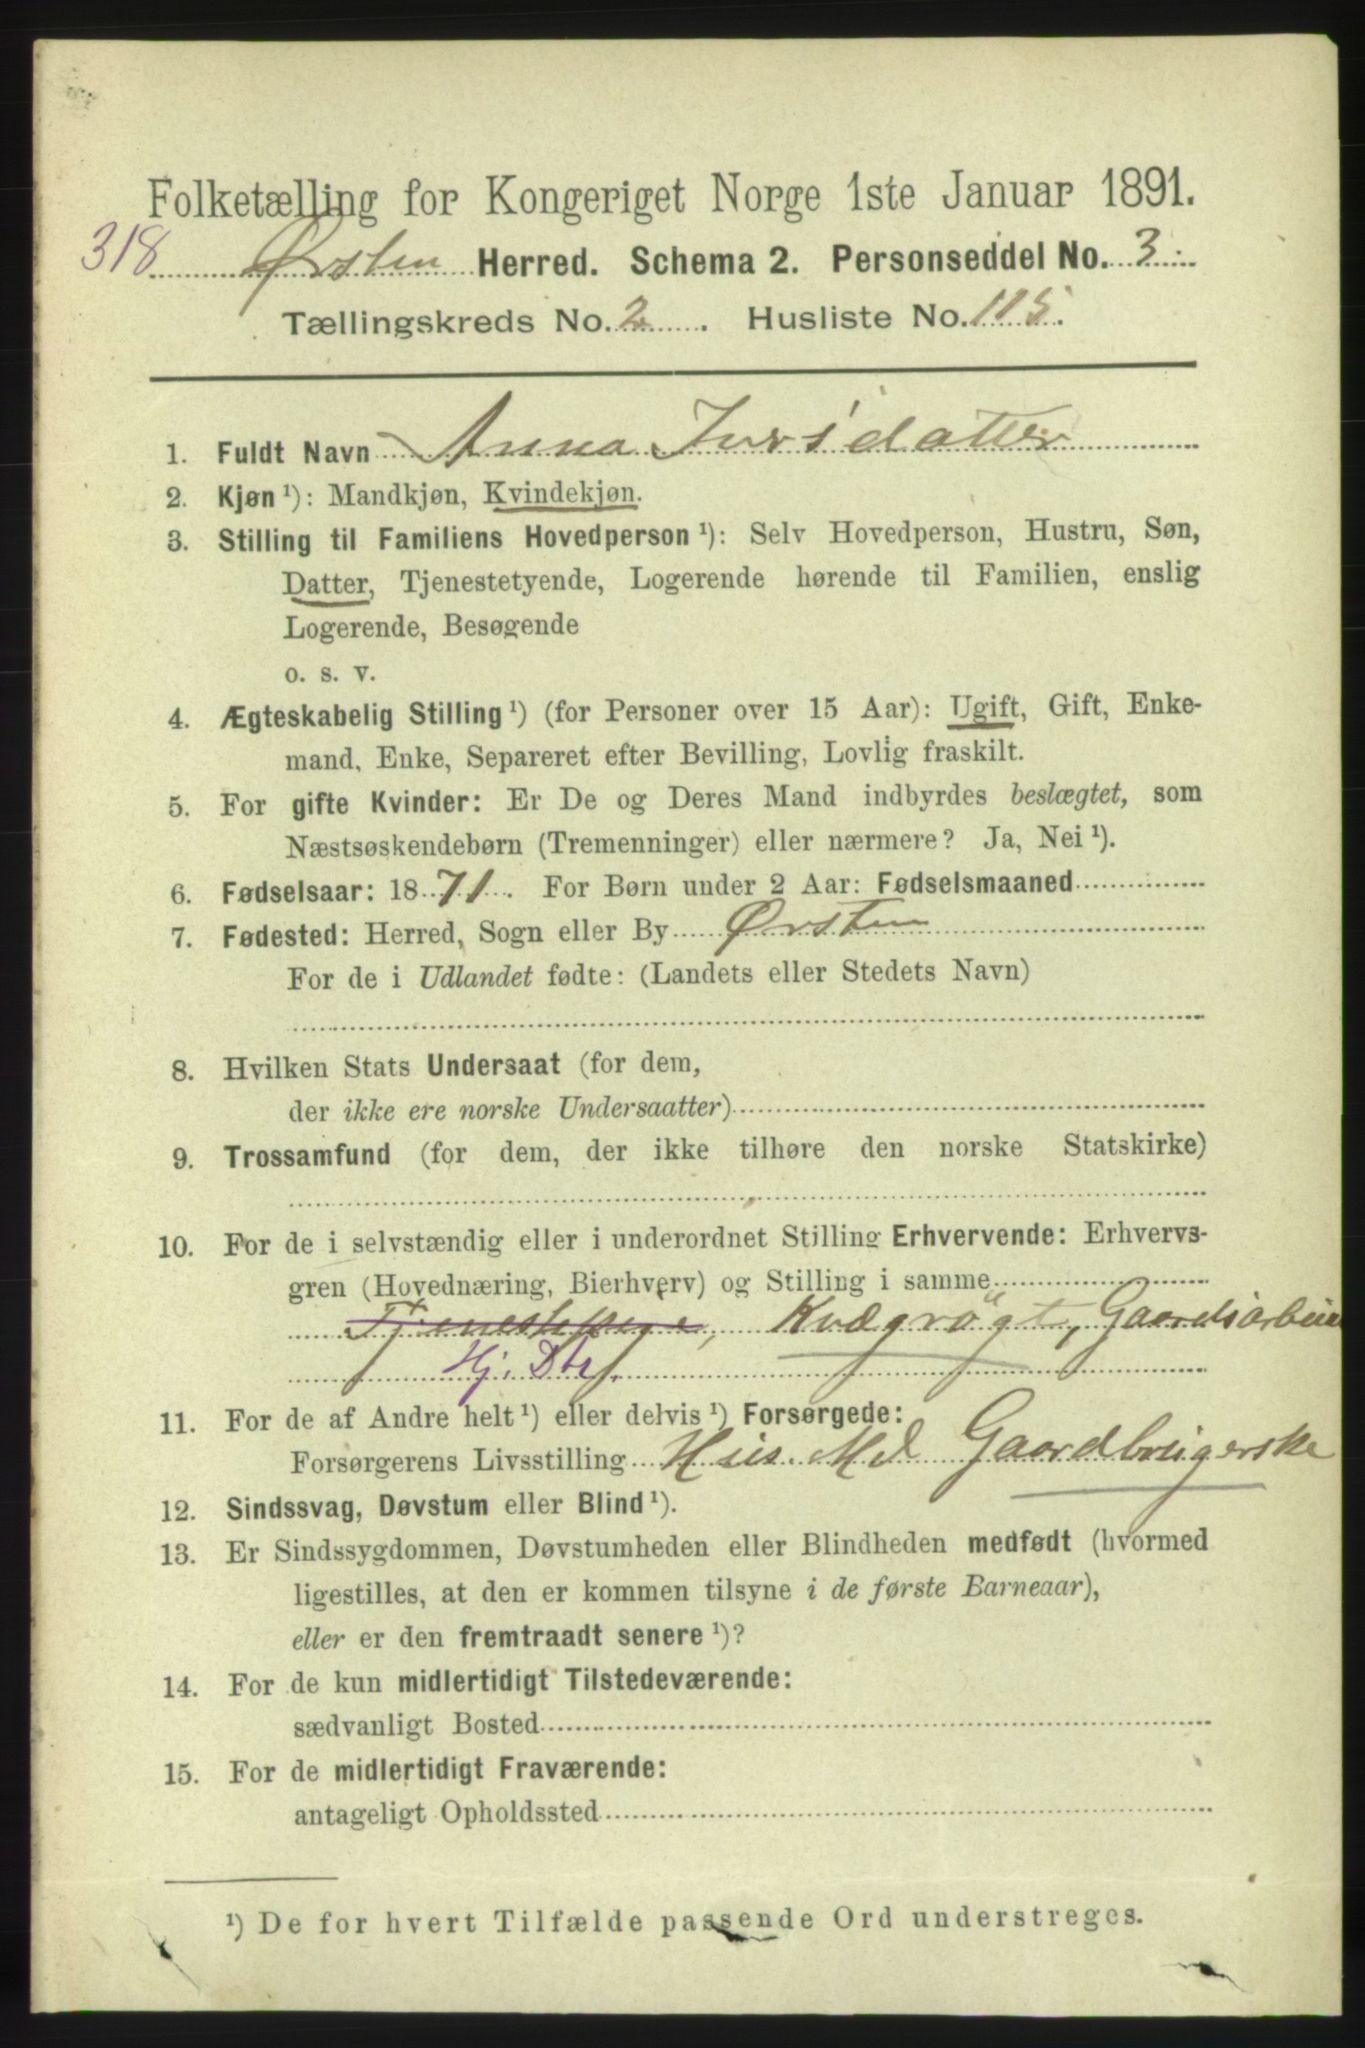 Folketælling for Kongeriget Norge 1ste Januar 1891.
318 Ørsten Herred. Schema 2. Personseddel No. 3.
Tællingskreds No. 2. Husliste No. 115.
1. Fuldt Navn Anna Iversdatter
2. Kjøn ¹): Mandkjøn, Kvindekjøn.
3. Stilling til Familiens Hovedperson ¹): Selv Hovedperson, Hustru, Søn,
Datter, Tjenestetyende, Logerende hørende til Familien, enslig
Logerende, Besøgende
o. s. v.
4. Ægteskabelig Stilling ¹) (for Personer over 15 Aar): Ugift, Gift, Enke-
mand, Enke, Separeret efter Bevilling, Lovlig fraskilt.
5. For gifte Kvinder: Er De og Deres Mand indbyrdes beslægtet, som
Næstsøskendebørn (Tremenninger) eller nærmere? Ja, Nei ¹).
6. Fødselsaar: 1871. For Børn under 2 Aar: Fødselsmaaned
7. Fødested: Herred, Sogn eller By Ørsten
For de i Udlandet fødte: (Landets eller Stedets Navn)
8. Hvilken Stats Undersaat (for dem,
der ikke ere norske Undersaatter)
9. Trossamfund (for dem, der ikke tilhøre den norske Statskirke)
10. For de i selvstændig eller i underordnet Stilling Erhvervende: Erhvervs-
gren (Hovednæring, Bierhverv) og Stilling i samme
Kvægrøgt, Gaardsarbeide
Hj. Dtr.
11. For de af Andre helt ¹) eller delvis ¹) Forsørgede:
Forsørgerens Livsstilling Gaardbrugerske
12. Sindssvag, Døvstum eller Blind ¹).
13. Er Sindssygdommen, Døvstumheden eller Blindheden medfødt (hvormed
ligestilles, at den er kommen tilsyne i de første Barneaar),
eller er den fremtraadt senere ¹)?
14. For de kun midlertidigt Tilstedeværende:
sædvanligt Bosted
15. For de midlertidigt Fraværende:
antageligt Opholdssted
¹) De for hvert Tilfælde passende Ord understreges.